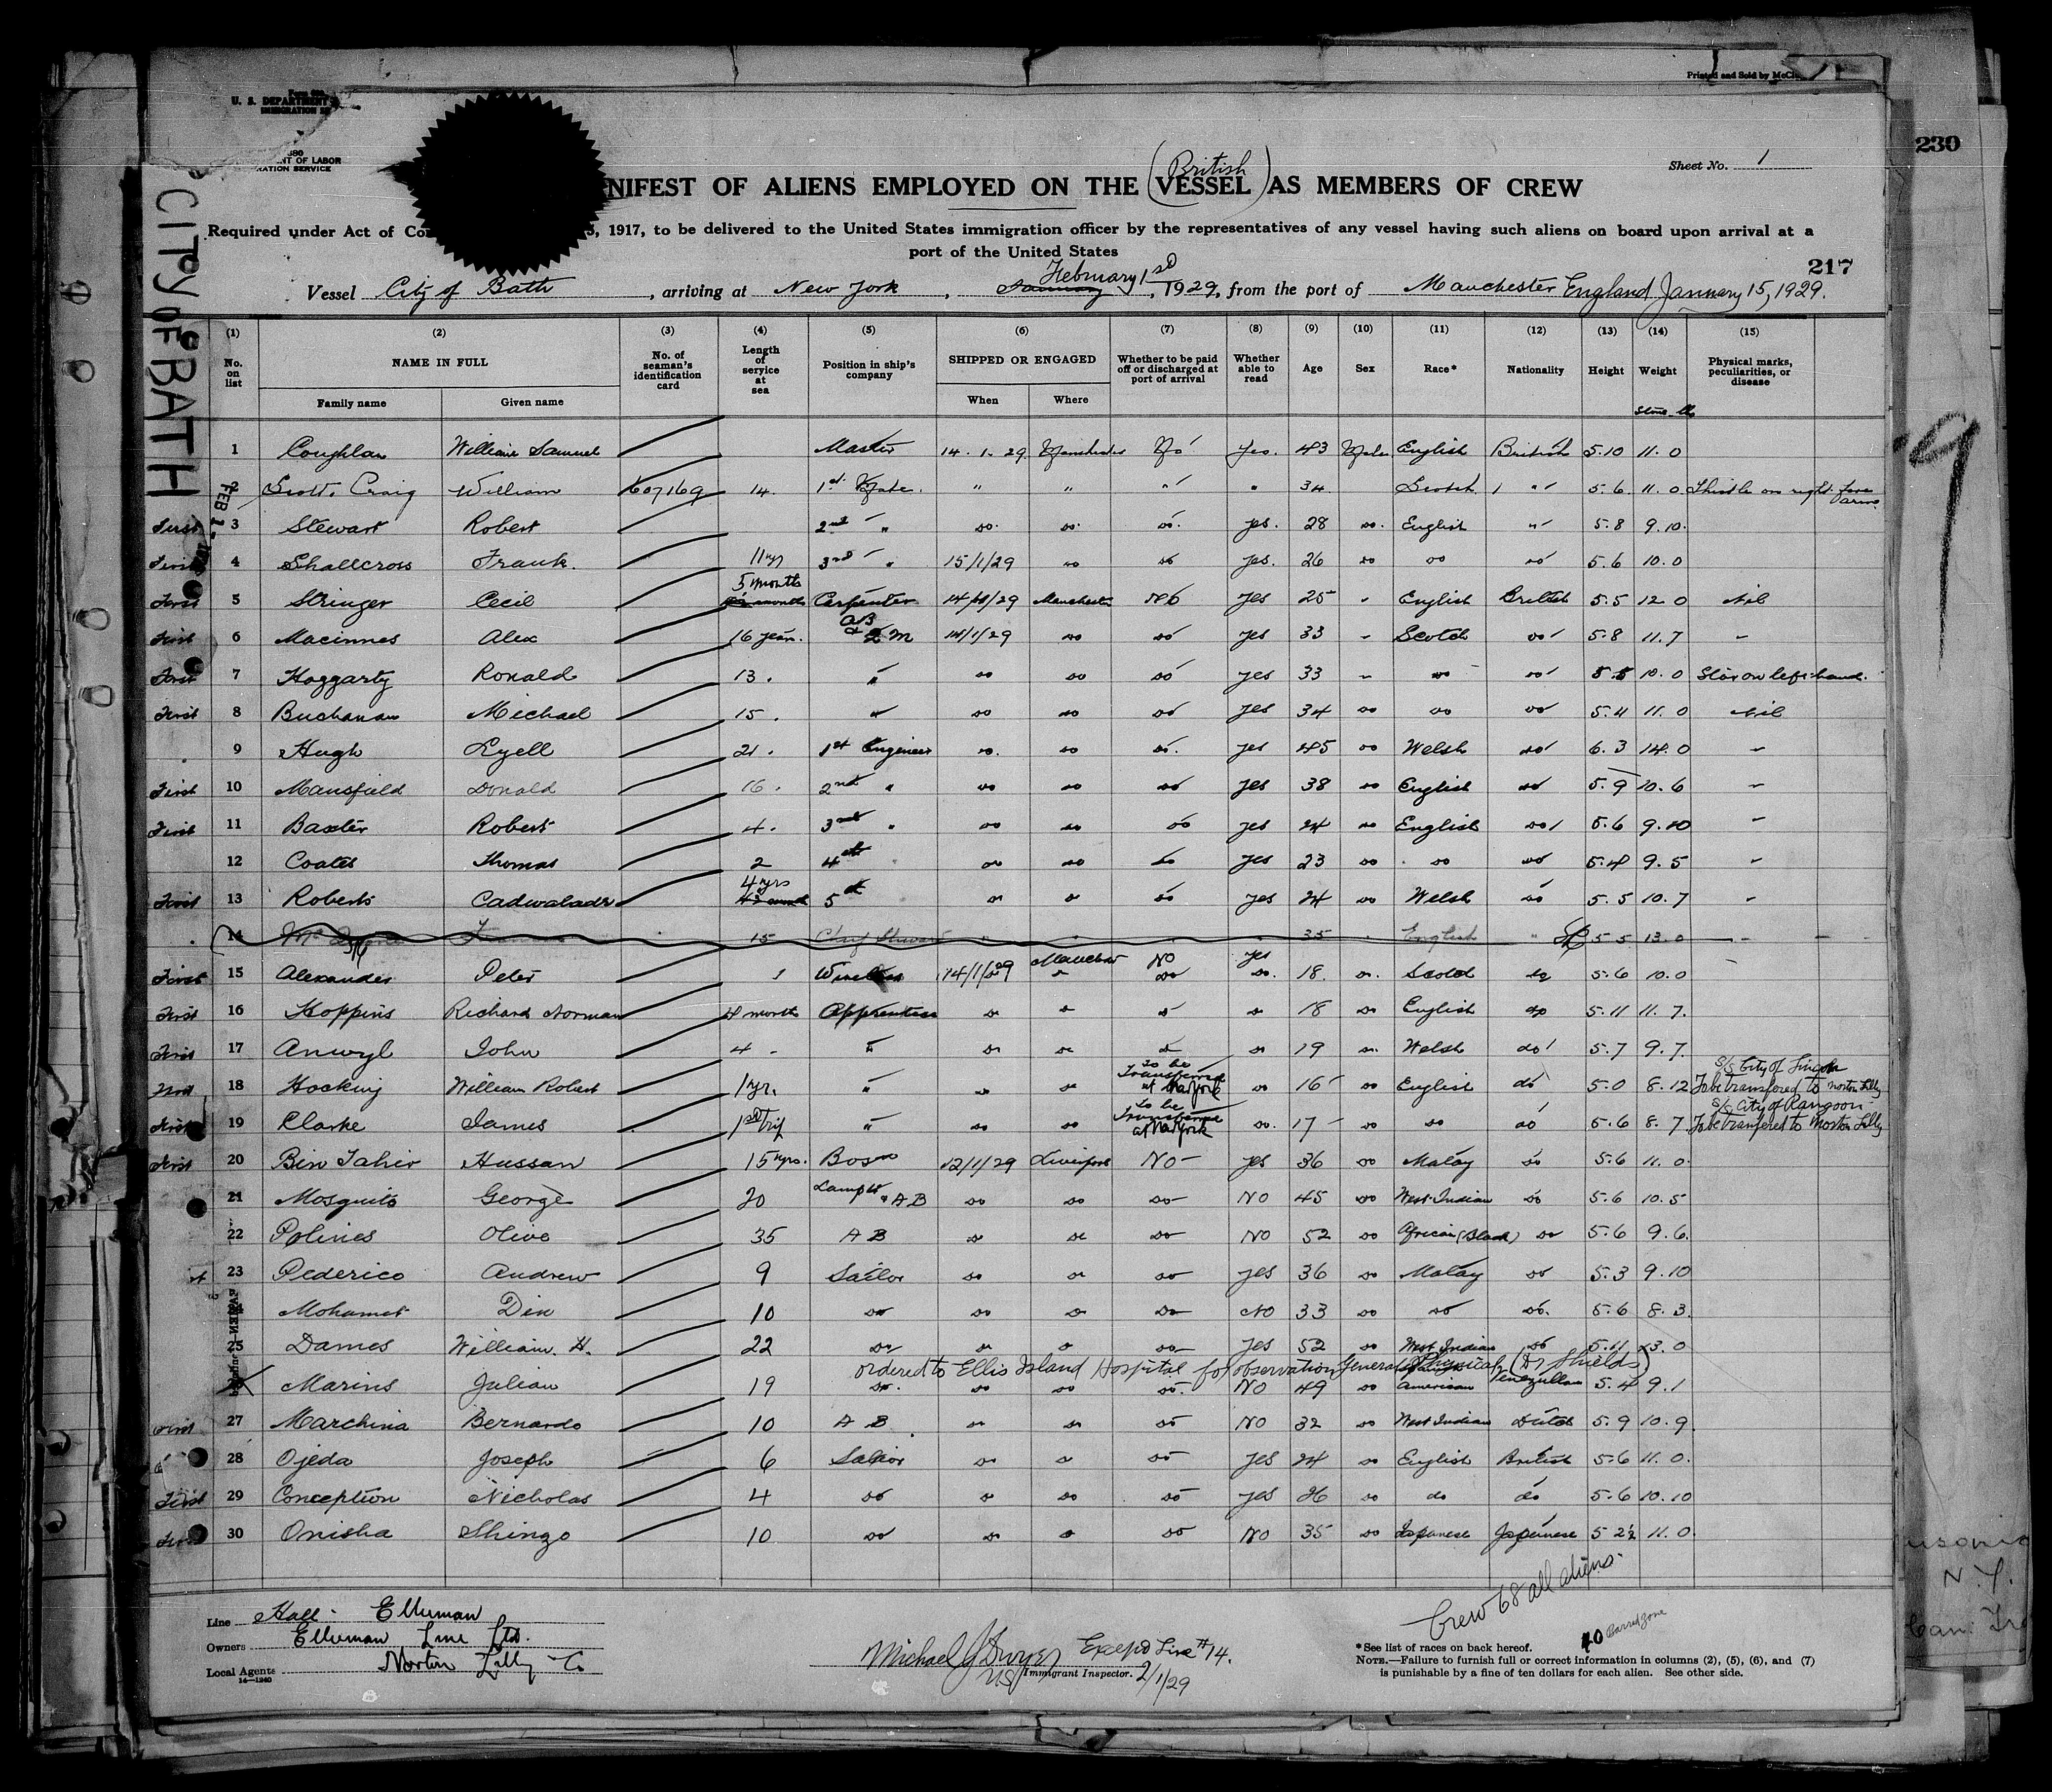 Printed and Sold by McCl
U. S. DEPARTMENT
IMMIGRATION SE
380
ENT OF LABOR
RATION SERVICE
230
Sheet No. 1
CITY OF BATH
(British)
NIFEST OF ALIENS EMPLOYED ON THE VESSEL AS MEMBERS OF CREW
Required under Act of Con 5, 1917, to be delivered to the United States immigration officer by the representatives of any vessel having such aliens on board upon arrival at a
port of the United States
217
February 1st
Vessel City of Bath, arriving at New York, January, 1929, from the port of Manchester England January 15, 1929.
(1) (2) (3) (4) (5) (6) (7) (8) (9) (10) (11) (12) (13) (14) (15)
No. on list NAME IN FULL Family name Given name No. of seaman's identification card Length of service at sea Position in ship's company SHIPPED OR ENGAGED When Where Whether to be paid off or discharged at port of arrival Whether able to read Age Sex Race* Nationality Height Weight Physical marks, peculiarities, or disease
1 Coughlan William Samuel Master 14. 1. 29 Manchester No Yes. 43 Male English British 5.10 11. 0
2 Scott. Craig William 607169 14. 1st Mate. " " " " 34 Scotch " 5.6. 11. 0 Thistle on right fore arm.
First 3 Stewart Robert 2nd " do. do. do. yes. 28 do. English " 5.8 9.10.
First 4 Shallcross Frank. 11 yrs 3rd " 15/1/29 do do yes. 26 do do do 5.6 10.0
First 5 Stringer Cecil 5 months Carpenter 14/1/29 Manchester No yes 25 English British 5.5 12 0 Nil
First 6 Macinnes Alex 16 years. AB 14/1/29 do do yes 33 Scotch do 5.8 11.7
First 7 Hoggarty Ronald 13. " do do do yes 33 do do 5.5 10.0 Star on left hand.
First 8 Buchanan Michael 15. " do do do yes 34 do do do 5.11 11.0 Nil
9 Hugh Lyell 21. 1st Engineer do. do do. yes 45 do Welsh do 6.3 14.0
First 10 Mansfield Donald 16. 2nd " do do do yes 38 do English do 5.9 10.6
First 11 Baxter Robert 4. 3rd " do do do yes 24 do English do 5.6 9.10
12 Coates Thomas 2 4th " do do do yes 23 do do do 5.4 9.5
First 13 Roberts Cadwalader 4 yrs 5th do do do yes 24 do Welsh do 5.5 10.7
14 15 Chief Steward 35 English " 5 5 13.0
First 15 Alexander Peter 1 Wireless 14/1/29 Manchester do No do yes do. 18. do. Scotch do 5.6 10.0
First 16 Hoppins Richard Norman 4 months Apprentice do do do do 18 do English do 5.11 11.7.
First 17 Anwyl John 4 " do do do do 19 do. Welsh do 5.7 9.7.
18 Hocking William Robert 1 yr. " do do To be Transferred at New York do 16 do English do 5.0 8.12 S/S City of Lincoln To be transfered to Norton Lilly
First 19 Clarke James 1st Trip " do do To be Transferred at New York do. 17 do do do 5.6 8.7. S/S City of Rangoon To be transfered to Norton Lilly
First 20 Bin Tahir Hussan 15 yrs. Bosn 12/1/29 Liverpool No yes 36 do Malay do 5.6 11.0.
21 Mosquito George 20 Lamps & AB do do do No 45 do West Indian do 5.6 10.5
22 Polines Olive 35 AB do do do No 52 do African (Black) do 5.6 9.6.
23 Pederico Andrew 9 Sailor do do do yes 36 do Malay do 5.3 9.10
24 Mohamet Din 10 do do do do No 33 do do do. 5.6 8.3.
25 Dames William. H. 22 do do do do yes 52 do West Indian do 5.11 13.0
ordered to Ellis Island Hospital for observation General Physical (Dr Shields)
Marins Julian 19 do. do do do. No 49 do American Venezuellan 5.4 9.1
First 27 Marchina Bernardo 10 AB do do do No 32 do West Indian Dutch 5.9 10.9.
28 Ojeda Joseph 6 Sailor do do do yes 24 do English British 5.6 11.0.
First 29 Conception Nicholas 4 do do do do yes 26 do do do 5.6 10.10
First 30 Onisha Shingo 10 do do do do No 35 do Japanese Japanese 5 2½ 11.0.
Crew 68 all aliens.
40 Barred zone
Line Hall - Ellerman
Owners Ellerman Line Ltd.
Local Agents Norton Lilly & Co
14—1240
Michael J Dwyer Except Line #14.
US Immigrant Inspector. 2/1/29
*See list of races on back hereof.
NOTE.—Failure to furnish full or correct information in columns (2), (5), (6), and (7)
is punishable by a fine of ten dollars for each alien. See other side.
N.Y.